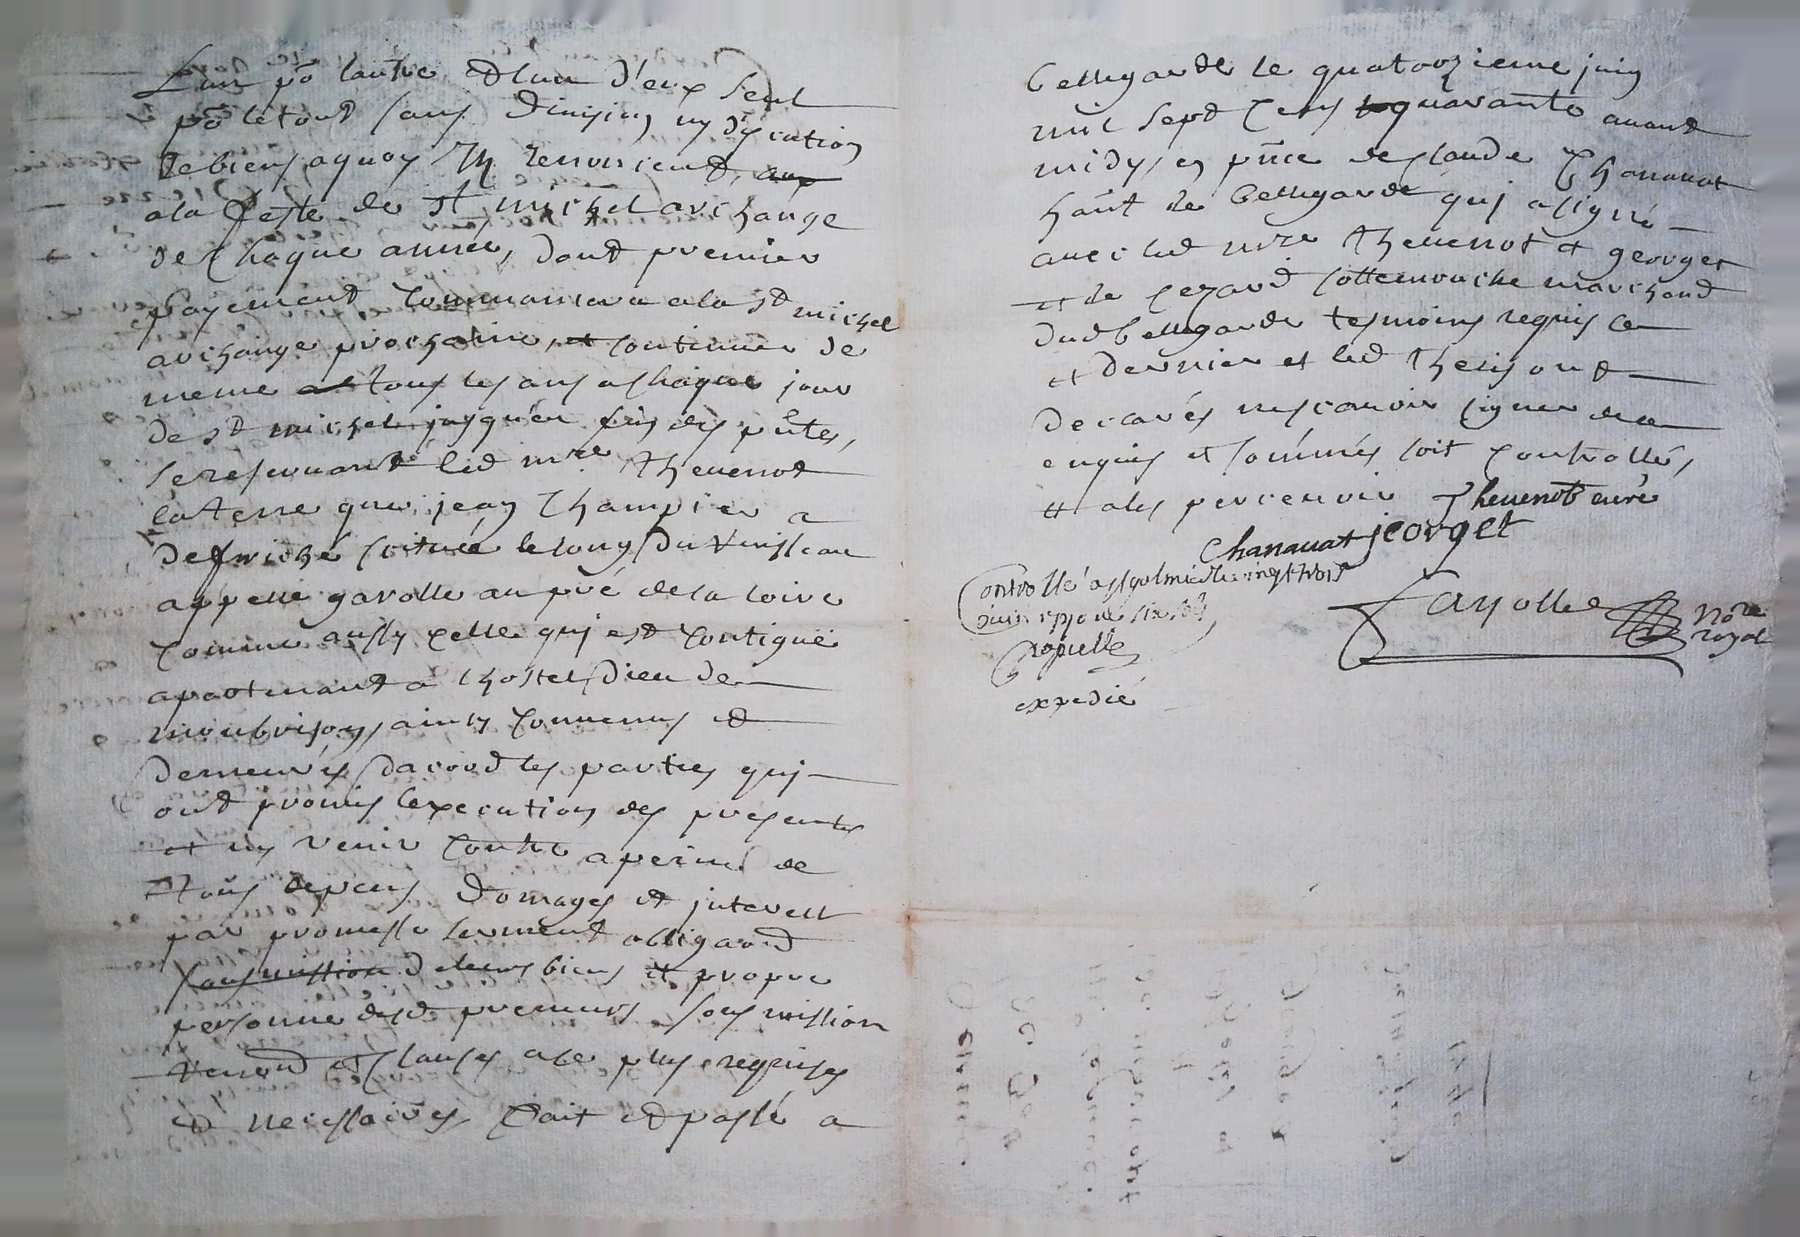 L'un po lautre & lun d'eux seul
po le tout sans division ny discution
de biens a quoy ils renoncient, aux
a la feste de st michel archange
de chaque année, dont premier
payement commancera a la st michel
archange prochaine, et continuer de
meme tous les ans a chaque jour
de st michel jusqu'en fin des pntes,
se reservant led mre thevenot
la terre que jean Champier a
defriché scituée le long du ruisseau
appellé garolle au pré de la loire
comme aussy celle qui est contiguë
apartenant a l'hostel dieu de
monbrison, ainsy convenus et
demeurés dacord les parties qui
ont promis lexecution des presentes
et ny venir contre a peine de
tous depens domages et interest
par promesse serment obligaõn
sousmission de leurs biens et propre
personne desd preneurs sousmission
renonõn et clauses a ce plus requises
et necessaires, fait et passé a
bellegarde le quatorzieme juin
mil sept cens quarante avant
midy, en pñce de claude Chanavat
hañt de bellegarde qui a signé
avec led mre thevenot et georget
et de cottemouche marchand
dud bellegarde tesmoins requis ce
et dernier et led theris ont
decarés ne scavoir signer de ce
enquis et sommés soit controllés,
et a les percevoir Thevenot curé
Chanavat jeorget
Controllé a st galmier le vingt trois
juin 1740 six sols
expedié
Fayolle Nore
royal